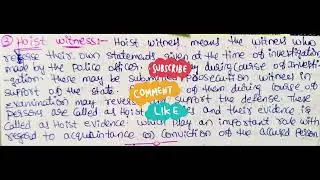 ② Hoist witness:- Hoist witness means the witness who
reverse their own statements given at the time of investigation
made by the police officer. during course of investi-
gation. these may be submitted prosecution witness in
support of the state. of them during course of
examination may reverse support the defense. These
persons are called as Hoist and their evidence is
called as Hoist evidence. which play an important role with
respect to acquaintance or conviction of the accused person
SUBSCRIBE
COMMENT
LIKE